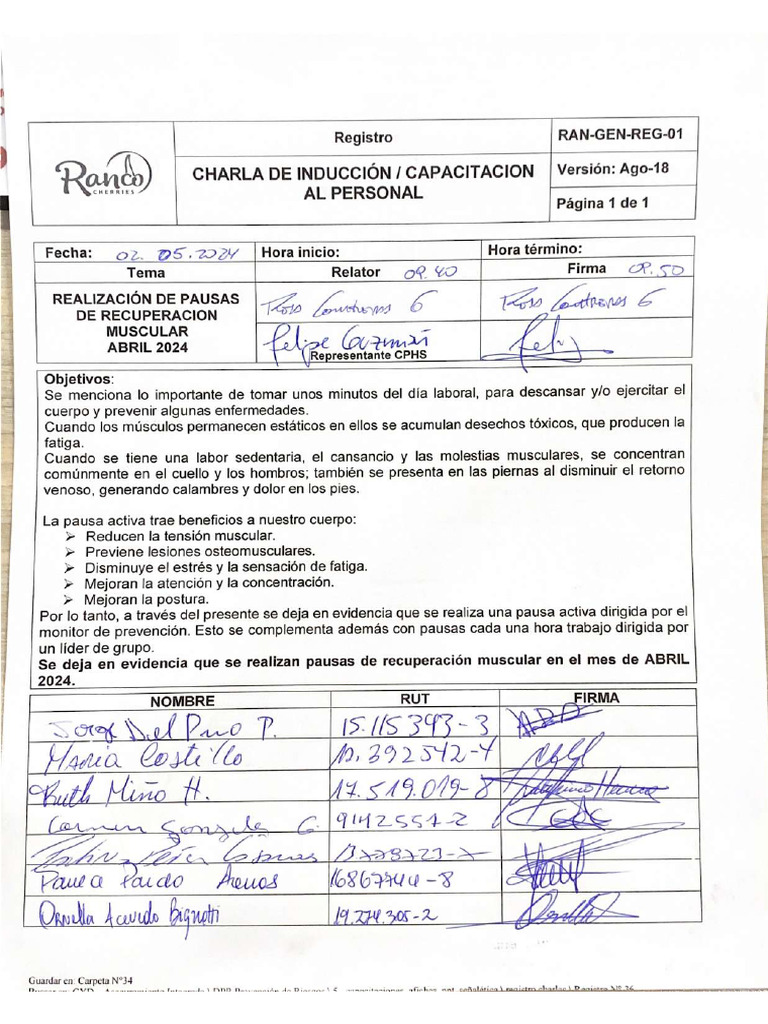 Ranco
CHERRIES
Registro
CHARLA DE INDUCCIÓN / CAPACITACION
AL PERSONAL
RAN-GEN-REG-01
Versión: Ago-18
Página 1 de 1
Fecha: 02.05.2024
Hora inicio:
Hora término:
Tema
Relator 09.40
Firma 09.50
REALIZACIÓN DE PAUSAS
DE RECUPERACION
MUSCULAR
ABRIL 2024
Ross Contreras G
Ross Contreras G
Felipe Guzmán
Representante CPHS
Objetivos:
Se menciona lo importante de tomar unos minutos del día laboral, para descansar y/o ejercitar el
cuerpo y prevenir algunas enfermedades.
Cuando los músculos permanecen estáticos en ellos se acumulan desechos tóxicos, que producen la
fatiga.
Cuando se tiene una labor sedentaria, el cansancio y las molestias musculares, se concentran
comúnmente en el cuello y los hombros; también se presenta en las piernas al disminuir el retorno
venoso, generando calambres y dolor en los pies.
La pausa activa trae beneficios a nuestro cuerpo:
➢ Reducen la tensión muscular.
➢ Previene lesiones osteomusculares.
➢ Disminuye el estrés y la sensación de fatiga.
➢ Mejoran la atención y la concentración.
➢ Mejoran la postura.
Por lo tanto, a través del presente se deja en evidencia que se realiza una pausa activa dirigida por el
monitor de prevención. Esto se complementa además con pausas cada una hora trabajo dirigida por
un líder de grupo.
Se deja en evidencia que se realizan pausas de recuperación muscular en el mes de ABRIL
2024.
NOMBRE RUT FIRMA
Jorge Del Pino P. 15.115343-3
Maria Costillo 392542-4
Ruth Miño H. 17.519.019-8
Carmen Gonzalez G. 9142551-2
Paula Pardo Arenas 16867744-8
Ornella Acevedo Bignotti 19.274.305-2
Guardar en: Carpeta N°34